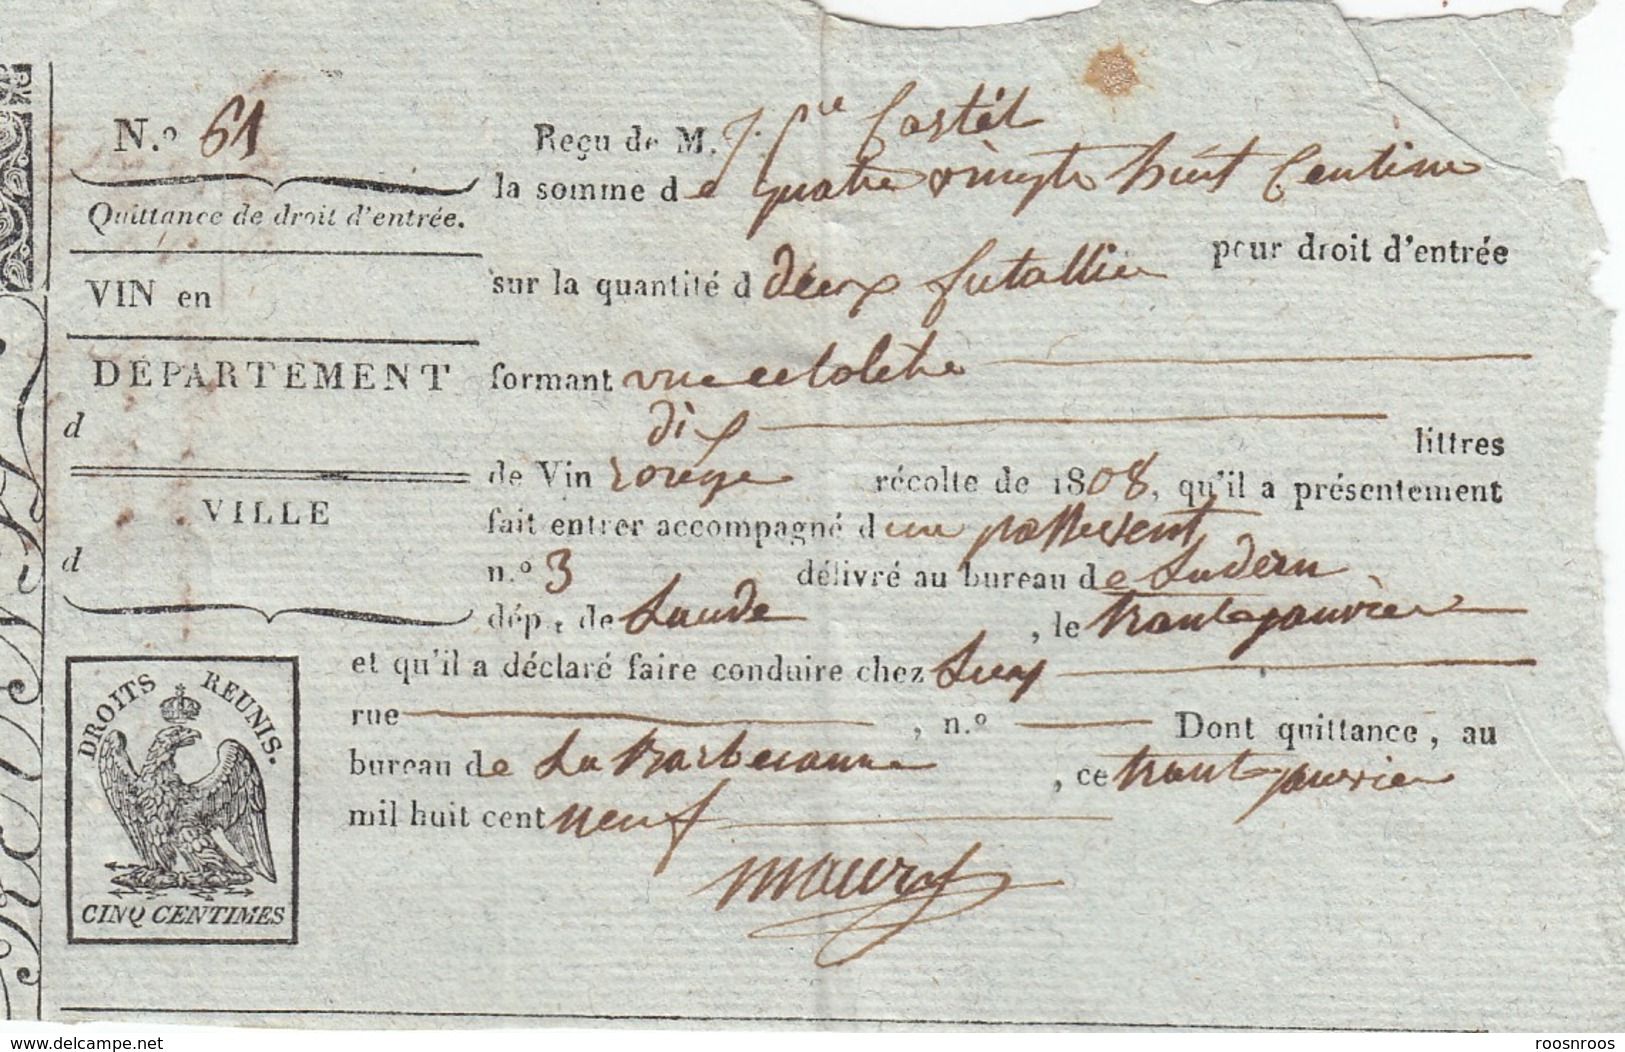 N.o 61
Quittance de droit d'entrée.
VIN en
DÉPARTEMENT
d
VILLE
d
DROITS REUNIS.
CINQ CENTIMES
Reçu de M. J. Castél
la somme de quatre vingts huit Centime
pour droit d'entrée
sur la quantité d deux futallie
formant une ectolitre
dix littres
de Vin rouge récolte de 1808, qu'il a présentement
fait entrer accompagné d un passavent
n.o 3 délivré au bureau de
dép. de Laude, le trante janvier
et qu'il a déclaré faire conduire chez Luy
rue , n.o Dont quittance, au
bureau de , ce trante janvier
mil huit cent neuf
Maury
www.delcampe.net
roosnroos